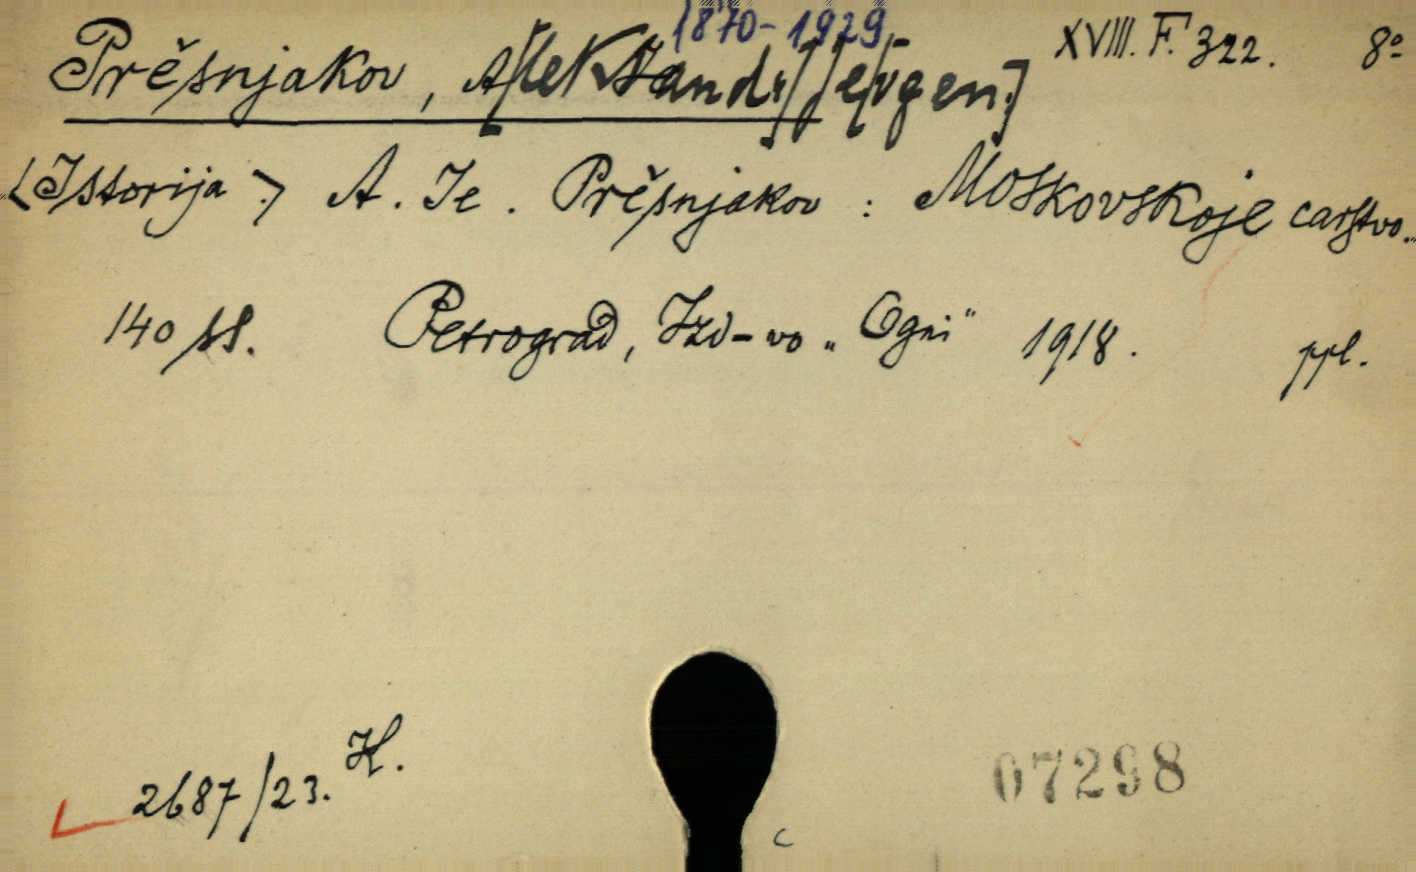 1870-1929
Prěsnjakov, A[leksandr] Je[vgen.] XVIII. F. 322. 8º
<Istorija.> A. Je. Prěsnjakov : Moskovskoje carstvo..
140 ss. Petrograd, Izd-vo „Ogni" 1918. ppl.
2687/23. K.
07298